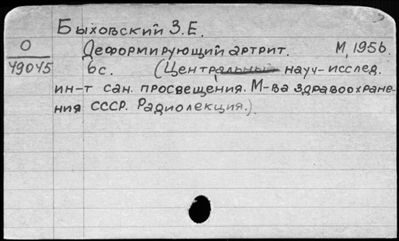 Быховский З.Е.
О Деформирующий артрит. М, 1956.
49045 6с. (Центральный науч-исслед.
ин-т сан. просвещения. М-ва здравоохране-
ния СССР. Радиолекция.)